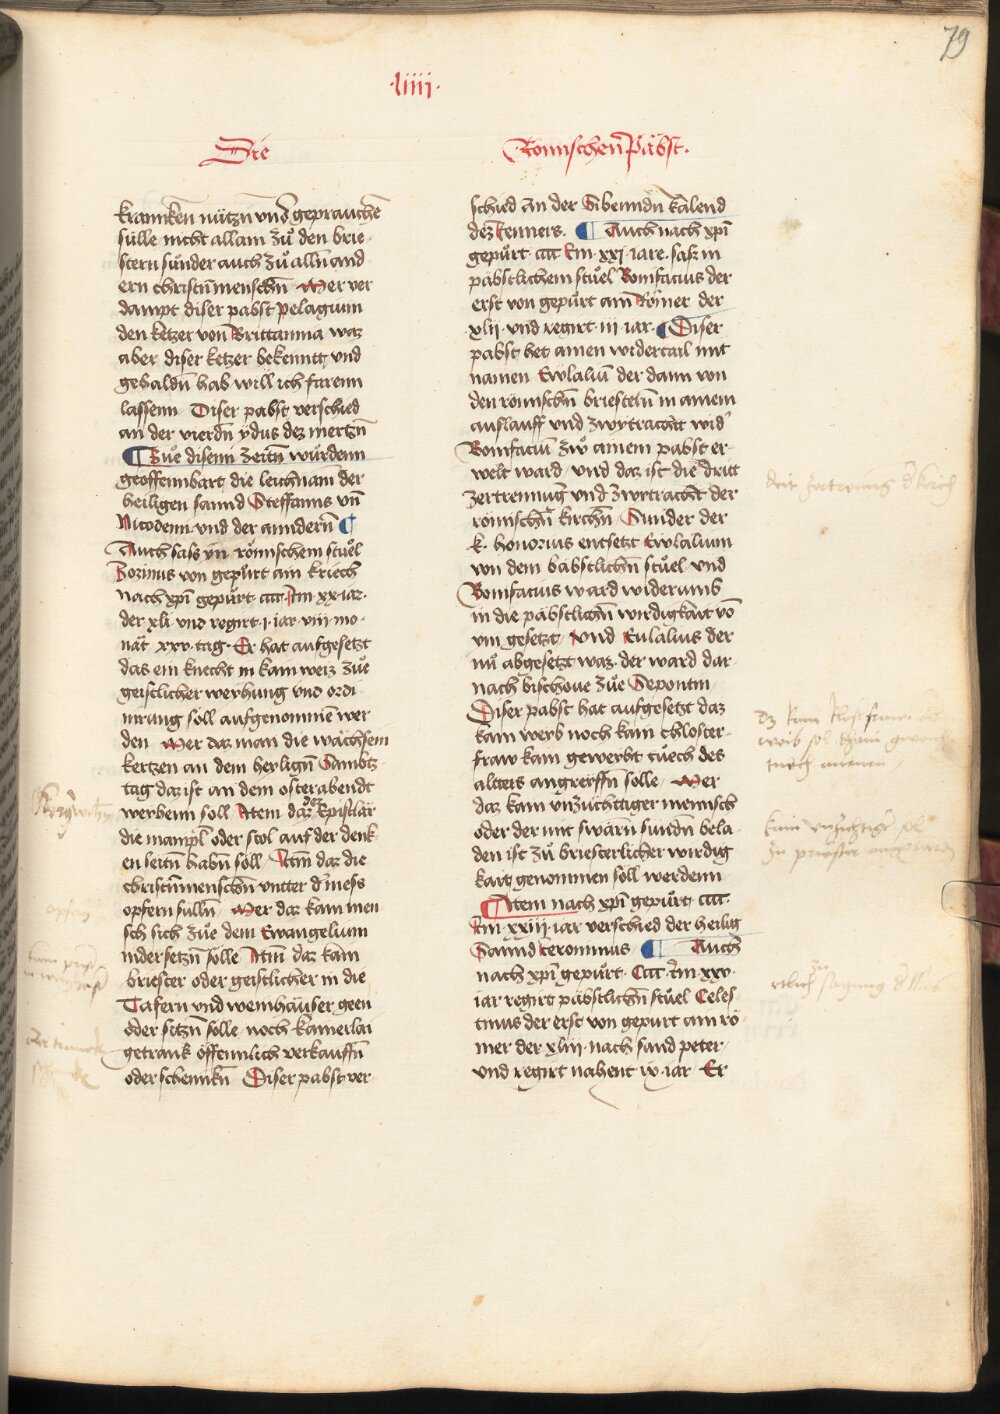 79
·liiii·
Die
Römischen Päbst.
krannken nützn vnd geprauchen
sülle nicht allain zuͦ den brie
stern sunder auch zuͦ alln and
ern christnmenschn Mer ver
dampt diser pabst pelagium
den ketzer von Brittannia waz
aber diser ketzer bekenntt vnd
gehaldn hab will ich farenn
lassenn Diser pabst verschied
an der vierdn ydus dez mertzn
¶ Zue disenn Zeitn wurdenn
geoffennbart die leichnam der
heiligen sannd Steffanns vn̄
Nicodemi vnd der anndern ¶
Auch sass yn römischem stuͦl
Zozimus von gepurt ain kriech
nach xpi gepurt cccc Im xx iar
der xli vnd regirt i iar viii mo
nät xxv tag Er hat aufgesetzt
das ein knecht in kain weiz zuͤ
geistlicher weyhung vnd ordi
nirung soll aufgenommen wer
den Mer daz man die wächsem
kertzen an dem heylign Sambtz
tag daz ist an dem osterabendt
weyhenn soll Item daz der Epistlär
die mampl oder stol auf der denk
en seitn habn soll Itm daz die
christnmenschn vntter d' mess
opfern sulln Mer daz kain men
sch sich zuͤ dem Ewangelium
nidersetzn solle Itm daz kain
briester oder geistlicher in die
Tafern vnd weinhäuser geen
oder setzn solle noch kainerlai
getrank öffennlich verkauffn
oder schennkn Diser pabst ver
schied an der Sibenndn kalend
dez Jenners. ¶ Auch nach xpi
gepurt cccc Im xxi iare. sass in
päbstlichem stuͦel Bonifacius der
erst von gepurt ain Römer der
xlii vnd regirt iii iar ¶ Diser
pabst het ainen widertail mit
namen Ewlaliu der dann von
den römischn briesteln in ainem
auflauff vnd zwytrachtt wid'
Bonifaciu zuͦ ainem pabst er
welt ward vnd daz ist die dritt
zertrennug vnd zwytracht der
römischn kirchn Sunder der
k. honorius entsetzt Ewlalium
von dem babstlichn stuͦel vnd
Bonifacius ward widerumb
in die pabstlichn wirdigkait vo
im gesetzt Vnd Eulalius der
nu abgesetzt waz der ward dar
nach bischoue zuͤ Sepontin
Diser pabst hat aufgesetzt daz
kain weyb noch kain chloster
fraw kain geweyht tuͤch des
altters angreyffn solle Mer
daz kain vnzüchttiger mennsch
oder der mit swarn sundn bela
den ist zuͦ briesterlicher wirdig
kait genommen soll werdenn
Item nach xpi gepurt cccc
Im xxiii iar verschied der heilig
Sannd Jeronimus ¶ Auch
nach xpi gepurt Cccc Im xxv
iar regirt päbstlichn stuͦel Celes
tinus der erst von gepurt ain rö
mer der xliii nach sand peter
vnd regirt nahent ix iar Er